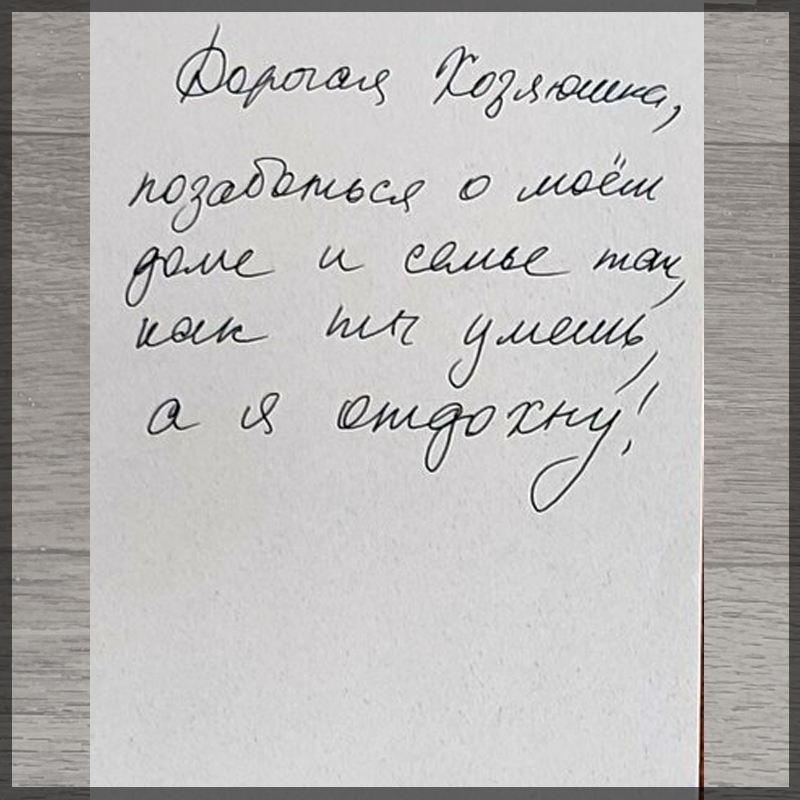 Дорогая Хозяюшка,
позаботься о моём
доме и семье так,
как ты умеешь,
а я отдохну!